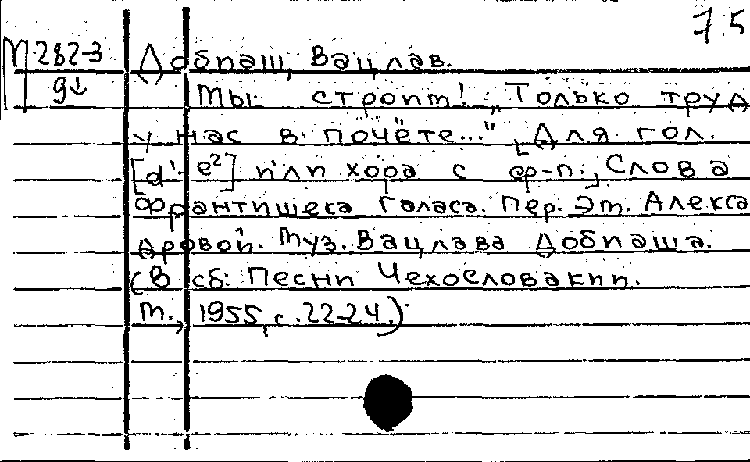 75
М 282-3 Добиаш, Вацлав.
9↓ Мы строим! „Только труд
у нас в почёте..." [Для гол.
[d¹-e²] или хора с ф-п.], Слова
Франтишека Галаса. Пер. Эт. Алекса
дровой. Муз. Вацлава Добиаша.
(В сб: Песни Чехословакии.
М., 1955, с. 22-24.)